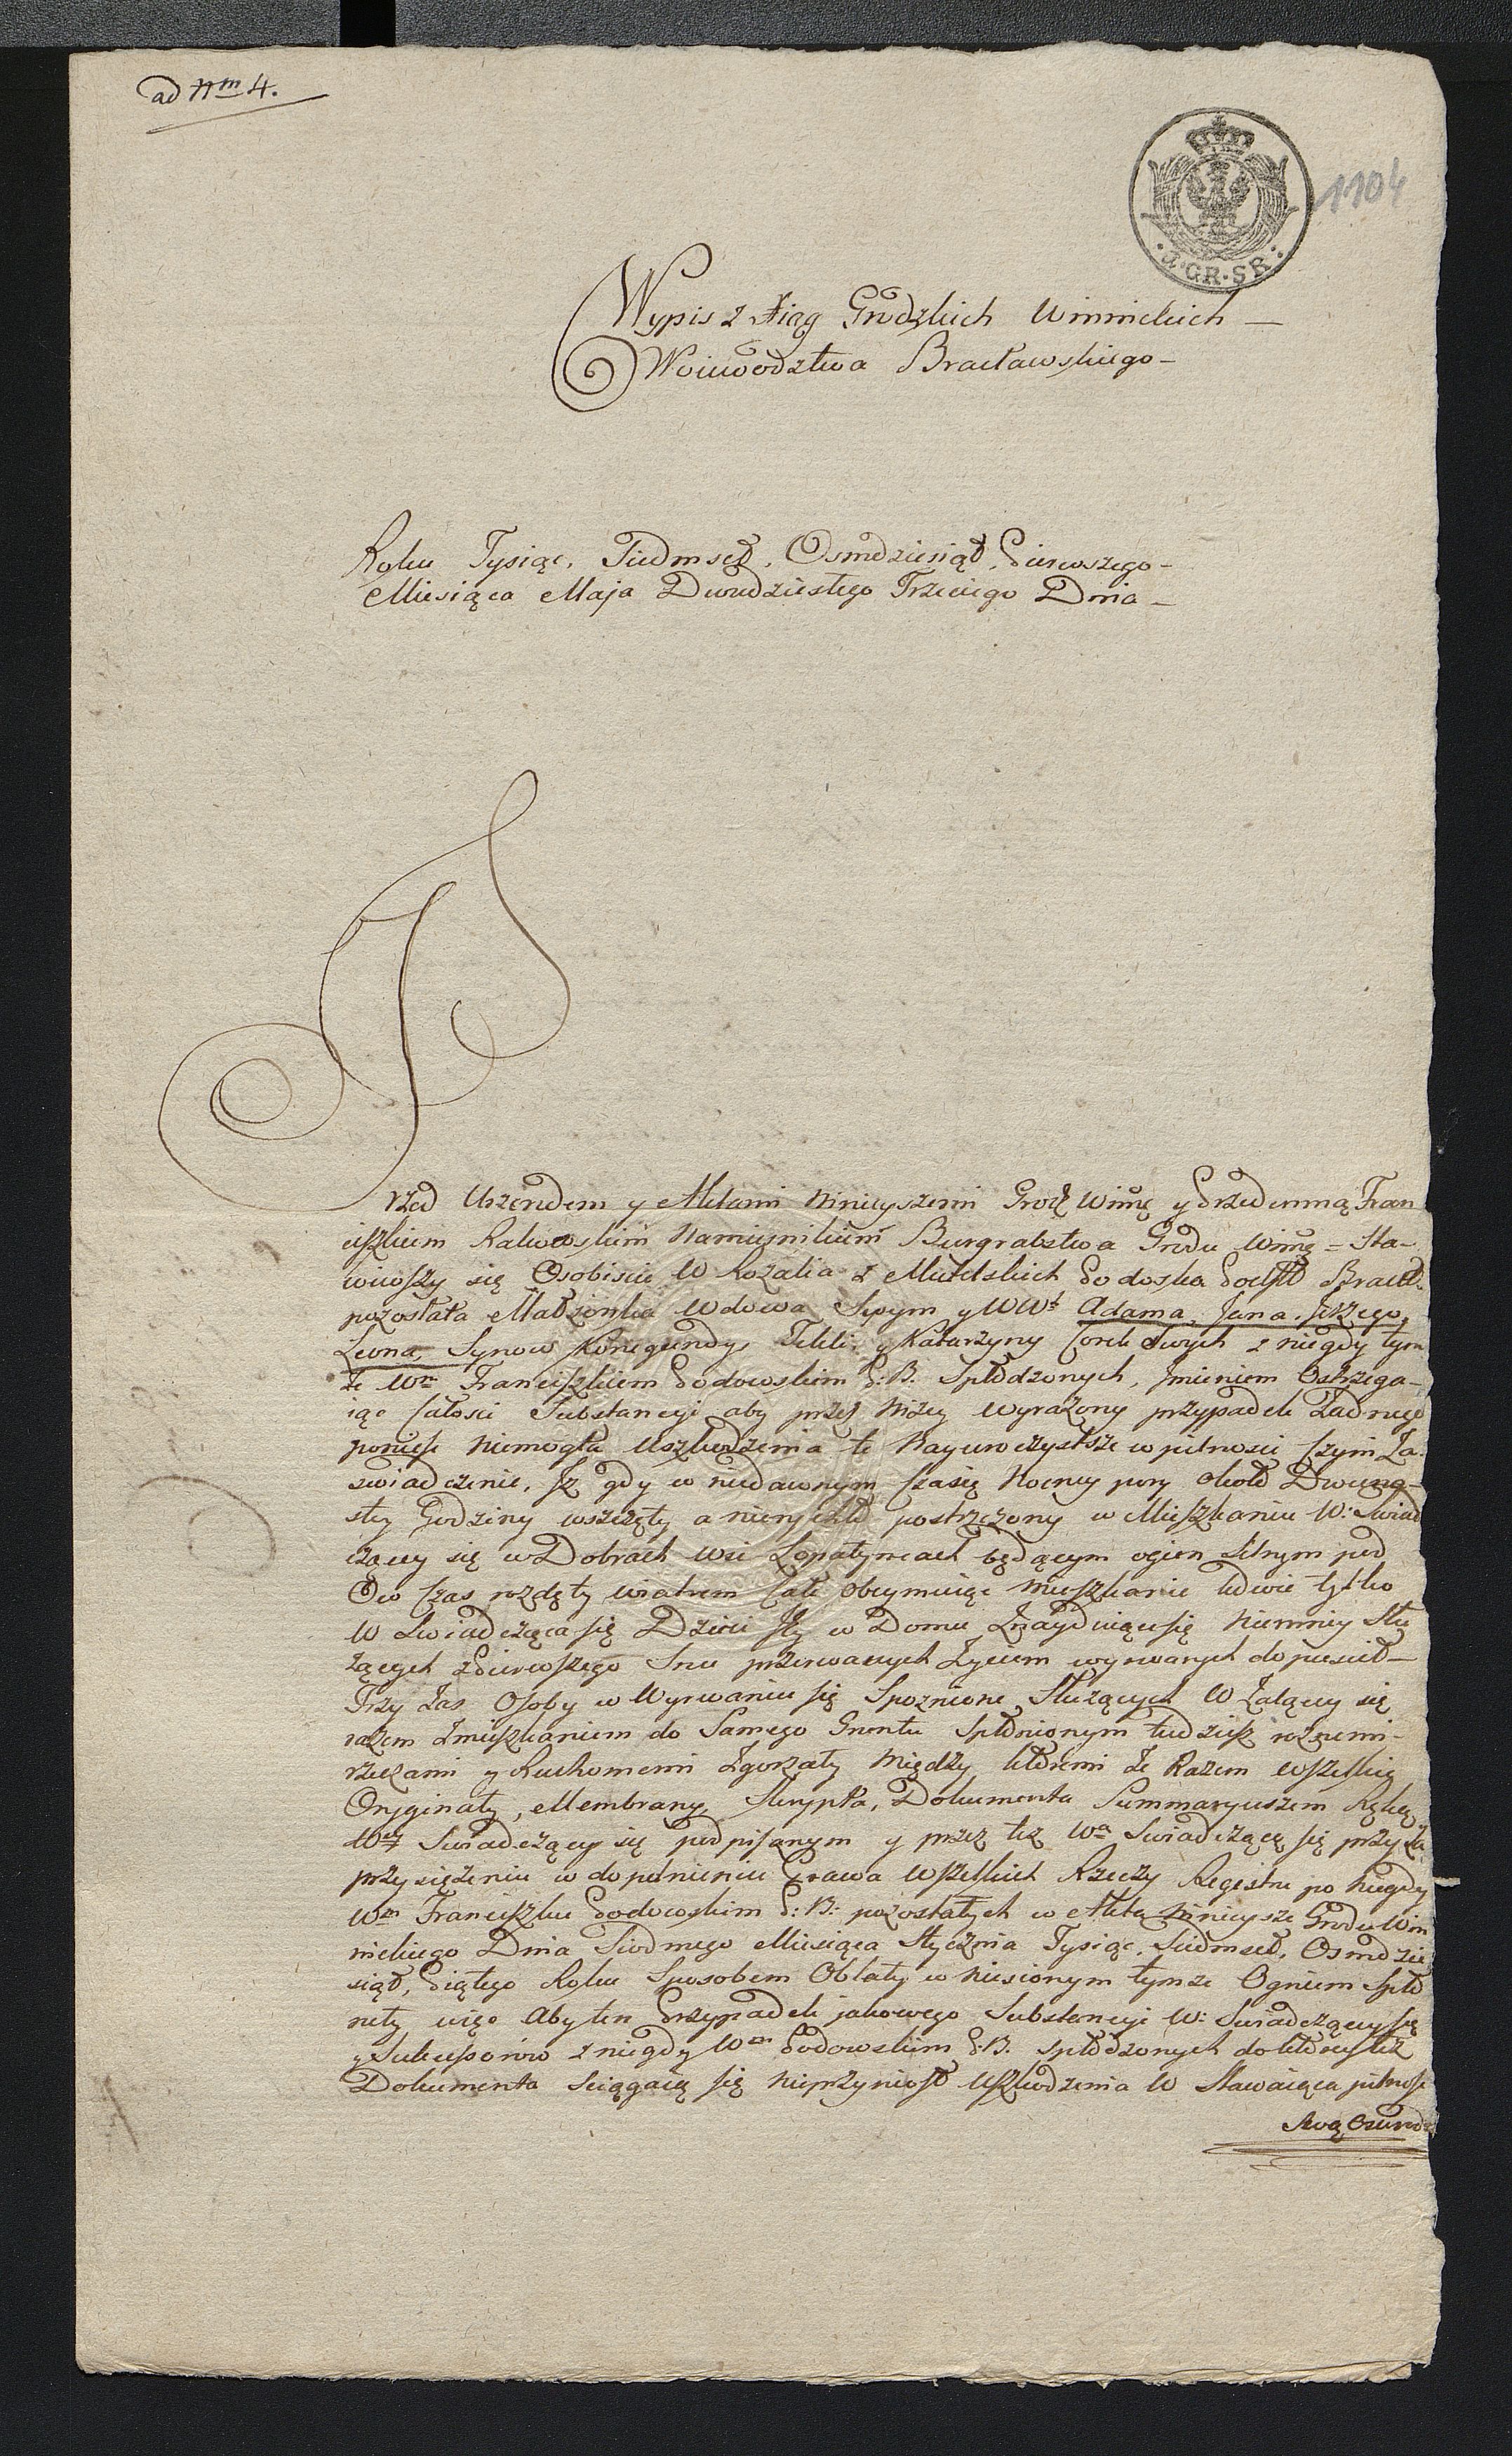 ad Nm 4.
3·GR·SR·
1104
Wypis z Xiąg Grodzkich Winnickich —
Woiewodztwa Bracławskiego —
Roku Tysiąc, Siedmset, Osmdziesiąt, Pierwszego —
Miesiąca Maja Dwudziestego Trzeciego Dnia —
Przed Urzendem y Aktami Ninieyszemi Grodz Winn y Przedemną Fran
ciszkiem Namiesnikiem Burgrabstwa Grodu Winn = Sta-
wiwszy się Osobiscie W Rozalia z Podoska Podst Bracł.
pozostała Małżonka Wdowa Swym y WW Adama, Jana, Jerzego,
Leona, Synow Konegundy, Tekli, y Katarzyny Corek Swych z niegdy tym
że Wm Franciszkiem Podowskim P: B. Spłodzonych, Jmieniem Ostrzega-
iąc całosci Substancyi aby przez niżey wyrażony przypadek Żadnego
poniesc niemogła Uszkodzenia te Nayuroczystsze w pilnosci czyni Za-
swiadczenie, Jż gdy w niedawnym czasie Nocney pory około Dwuna-
stey Godziny wszczęty a nierychło postrzeżony w Mieszkaniu W: Swiad
czącey się w Dobrach wsi Łopatyncach będącym ogien silnym pod
Ow czas rozdęty wiatrem całe obeymuiąc mieszkanie ledwie tylko
W Swiadcząca się Dzieci Jey w Domu Znayduiące się niemniey Słu
żących z Pierwszego Snu przerwanych Życiem wyrwanych dopuscił —
Trzy Zas Osoby w Wyrwaniu się Spoznione Służących W Żalącey się
razem Zmieszkaniem do Samego Gruntu Spłonionym tudziesz rożnemi
rzeczami y Ruchomemi Zgorzały między ktoremi że Razem wszelkie
Oryginały, Membrany, Skrypta, Dokumenta Summaryuszem Ręką
Wey Swiadczącey się podpisanym y przez też Wą Swiadczącą się przy Za-
przysiężeniu w dopełnieniu Prawa Wszelkich Rzeczy Regestru po niegdy
Wm Franciszku Podowskim P: B: pozostałych w Akta ninieysze Grodu Win
nickiego Dnia Siodmego Miesiąca Stycznia Tysiąc, Siedmset, Osmdzie
siąt, Piątego Roku Sposobem Oblaty wniesionym tymże Ogniem Spło
nęły więc Aby ten Przypadek jakowego Substancyi W: Swiadczącey się
y Sukcessorow z niegdy Wm Podowskim P: B. spłodzonych do ktorey też
Dokumenta sciągaią się nieprzyniosł Uszkodzenia W Stawaiąca pilnosc
Swą